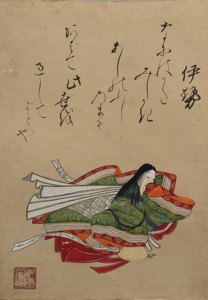 伊勢
なにはかた
みしかき
あしのふし
のまも
あはて此世を
すくして
よとや